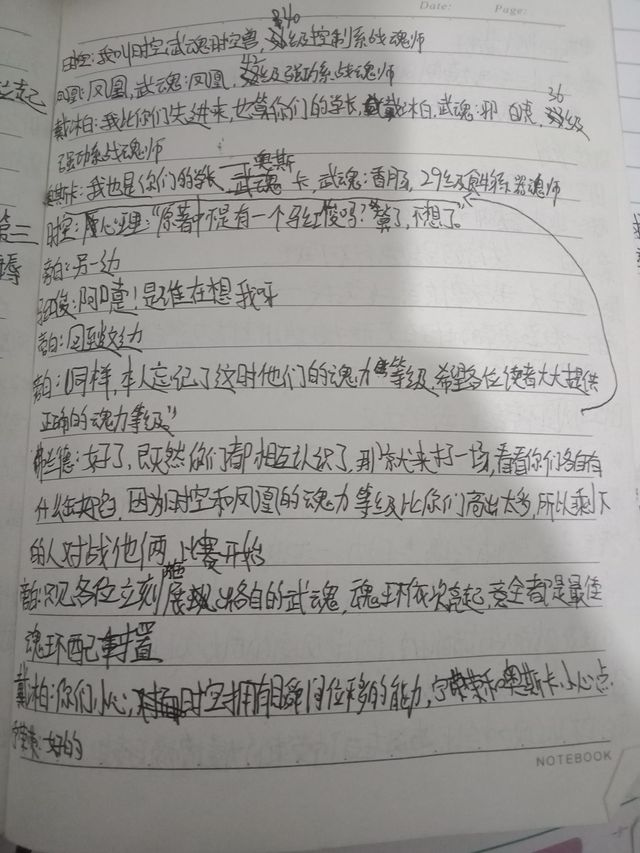 Date: Page:
时空:我叫时空,武魂时空兽,40级控制系战魂师
凤凰:凤凰,武魂:凤凰,42级强攻系战魂师
戴沐柏:我比你们先进来,也算你们的学长,戴沐柏,武魂:邪眸白虎,36级
强攻系战魂师
奥斯卡:我也是你们的学长,奥斯卡,武魂:香肠,29级食物系器魂师
时空:心里:“原著中不是有一个马红俊吗?算了,不想了。”
旁白:另一边
马红俊:阿嚏!是谁在想我呀
旁白:回到这边
旁白:(同样,本人忘记了这时他们的魂力等级,希望各位读者大大提供
正确的魂力等级)
弗兰德:好了,既然你们都相互认识了,那就来打一场,看看你们各自有
什么,因为时空和凤凰的魂力等级比你们高出太多,所以剩下
的人对战他俩,比赛开始
旁白:只见各位立刻施展出各自的武魂,魂环依次亮起,全都是最佳
魂环配置
戴沐柏:你们小心,时空拥有瞬间位移的能力,宁荣荣和奥斯卡小心点
宁荣荣:好的
NOTEBOOK